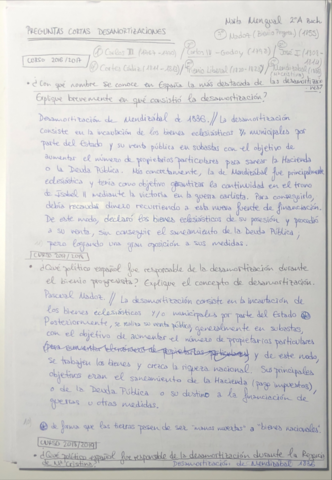 Marta Menguual 2ºA Bach
PREGUNTAS CORTAS DESAMORTIZACIONES
Madoz (Bienio Progres.) (1855)
Carlos III (1766-1798)
Carlos IV - Godoy (1798)
José I (1808-
CURSO 2016/2017
Cortes Cádiz (1811-1813)
Trienio Liberal (1820-1823)
Mendizábal (1836
• ¿Con qué nombre se conoce en España la más destacada de las desamortizaciones?
Explique brevemente en qué consistió la desamortización?
Desamortización de Mendizábal de 1836. // La desamortización
consiste en la incautación de los bienes eclesiásticos y/o municipales por
parte del Estado y su venta pública en subastas con el objetivo de
aumentar el número de propietarios particulares para sanear la Hacienda
o la Deuda Pública. Más concretamente, la de Mendizábal fue principalmente
eclesiástica y tenía como objetivo garantizar la continuidad en el trono
de Isabel II mediante la victoria en la guerra carlista. Para conseguirlo,
debía recaudar dinero recurriendo a esta nueva fuente de financiación.
De este modo, declaró los bienes eclesiásticos de su posesión y procedió
a su venta, sin conseguir el saneamiento de la Deuda Pública,
pero logrando una gran oposición a sus medidas.
CURSO 2017/2018
• ¿Qué político español fue responsable de la desamortización durante
el bienio progresista? Explique el concepto de desamortización.
Pascual Madoz. // La desamortización consiste en la incautación de
los bienes eclesiásticos y/o municipales por parte del Estado
Posteriormente, se realiza su venta pública, generalmente en subastas,
con el objetivo de aumentar el número de propietarios particulares
y de este modo,
se trabajen las tierras y crezca la riqueza nacional. Sus principales
objetivos eran el saneamiento de la Hacienda (pago impuestos),
o de la Deuda Pública o su destino a la financiación de
guerras u otras medidas.
de forma que las tierras pasen de ser "manos muertas" a "bienes nacionales"
CURSO 2018/2019
• ¿Qué político español fue responsable de la desamortización durante la Regencia
de Mª Cristina? Desamortización de Mendizábal 1836